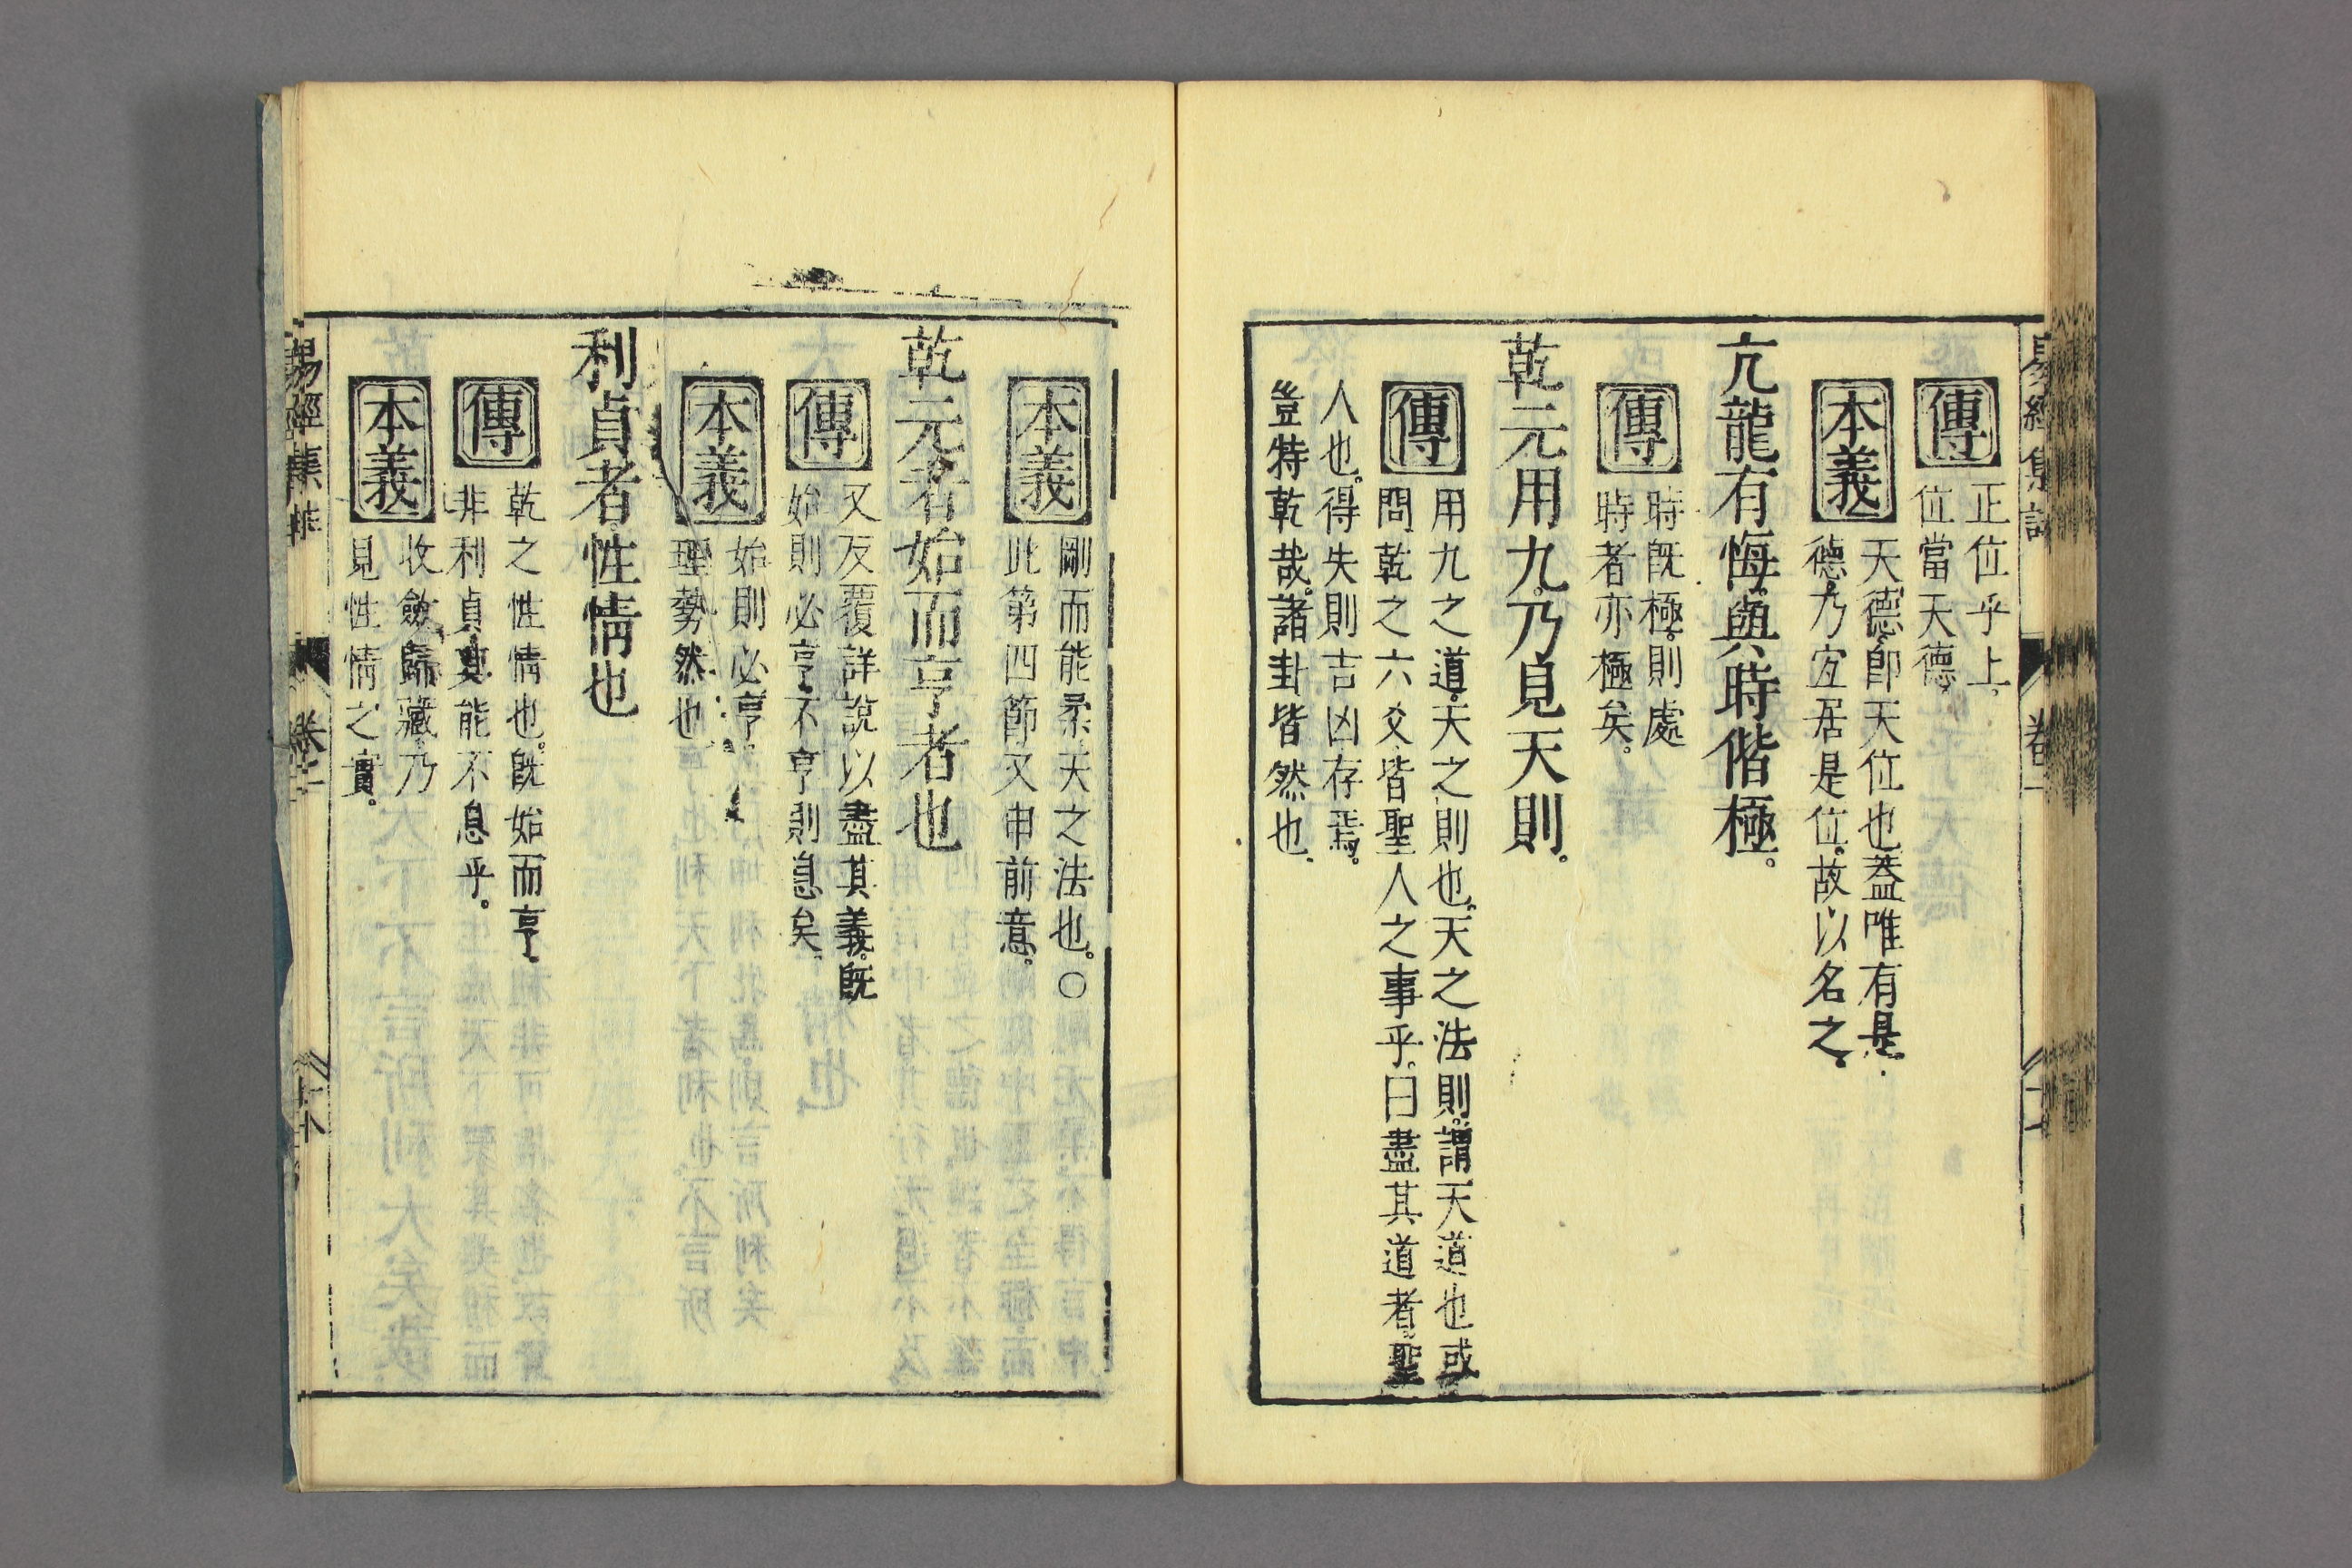 傳
正位乎上
位當天德
本義
天德卽天位也蓋唯有是
德乃宜居是位故以名之
亢龍有悔與時偕極。
傳
時旣極則處
時者亦極矣。
乾元用九乃見天則。
傳
用九之道天之則也天之法則謂天道也或
問乾之六爻皆聖人之事乎曰盡其道者聖
人也得失則吉凶存焉。
豈特乾哉諸卦皆然也
本義
剛而能柔天之法也。○
此第四節又申前意。
乾元者始而亨者也
傳
又反覆詳說以盡其義旣
始則必亨不亨則息矣
本義
始則必亨
理勢然也
利貞者性情也
傳
乾之性情也。旣始而亨
非利貞其能不息乎。
本義
收斂歸藏乃
見性情之實。
易經集註
卷一